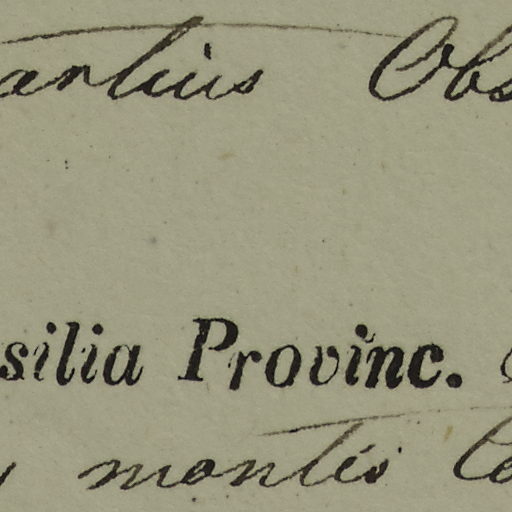 artius Obs
silia Provinc.
montis